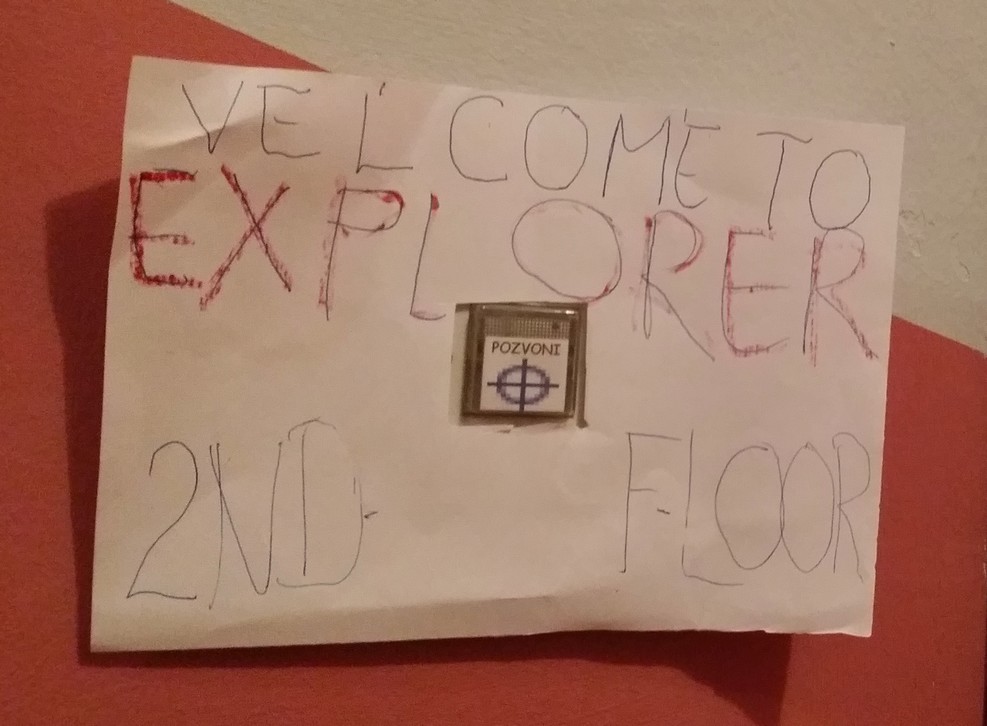 VELCOME TO
EXPLORER
POZVONI
2ND FLOOR